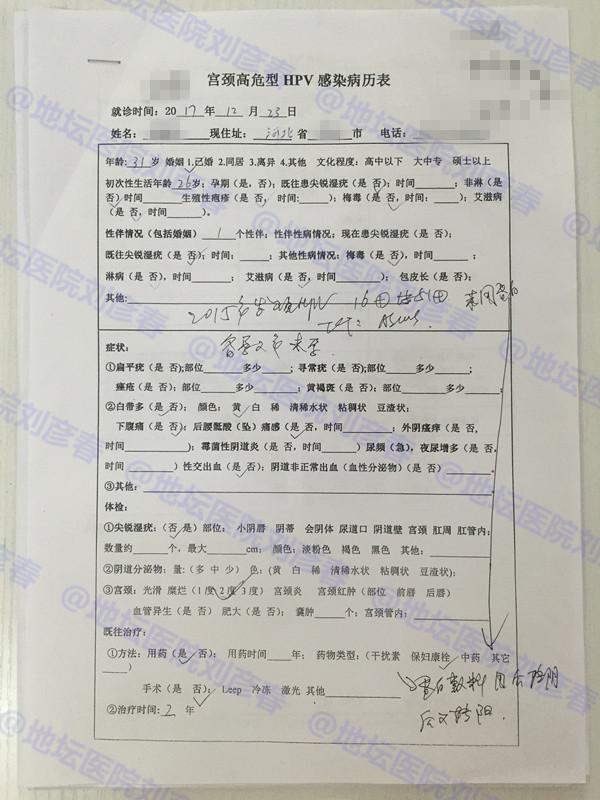 宫颈高危型 HPV 感染病历表
就诊时间：2017 年 12 月 23 日
姓名： 现住址： 河北 省 市 电话：
年龄：31 岁 婚姻 1.已婚 2.同居 3.离异 4.其他 文化程度：高中以下 大中专 硕士以上
初次性生活年龄 26 岁；孕期（是，否）；既往患尖锐湿疣（是 否）；时间 ；非淋（是
否）时间 生殖性疱疹（是 否，时间: ）；梅毒（是 否，时间： ）；艾滋病
（是 否，时间 ）。
性伴情况（包括婚姻） 1 个性伴；性伴性病情况：现在患尖锐湿疣（是 否）；
既往尖锐湿疣（是 否）；时间： ；其他性病情况：梅毒（是 否），时间 ；
淋病（是 否），时间 ； 艾滋病（是 否，时间 ）； 包皮长（是 否）；
其他:
2015 HPV 16 51
TCT: ASCUS.
症状：
①扁平疣（是 否);部位 多少 ；寻常疣（是 否);部位 多少 ；
痤疮（是 否）：部位 多少 ；黄褐斑（是 否）：部位 多少 ；
②白带多（是 否）； 颜色： 黄 白 稀 清稀水状 粘稠状 豆渣状；
下腹痛（是 否）；后腰骶酸（坠）痛感（是 否，时间 ）；外阴瘙痒（是 否，
时间 ）；霉菌性阴道炎（是 否，时间 ）尿频（急），夜尿增多（是 否，
时间 ）性交出血（是 否）；阴道非正常出血（血性分泌物）（是 否）
③其他：
体检：
①尖锐湿疣：（否 是）部位： 小阴唇 阴蒂 会阴体 尿道口 阴道壁 宫颈 肛周 肛管内；
数量约 个，最大 cm； 颜色：淡粉色 褐色 黑色 其他：
②阴道分泌物：量:（多 中 少） 色：（黄 白 稀 清稀水状 粘稠状 豆渣状）；
③宫颈：光滑 糜烂（1 度 2 度 3 度） 宫颈炎 宫颈红肿（部位 前唇 后唇）
血管异生（是 否） 肥大（是 否）； 囊肿 个；宫颈管内：
既往治疗：
①方法：用药（是 否）； 用药时间 年； 药物类型：（干扰素 保妇康栓 中药 其它
）
手术（是 否）： Leep 冷冻 激光 其他
蛋白敷料 用后转阴
后又转阳.
②治疗时间：2 年
@地坛医院刘彦春